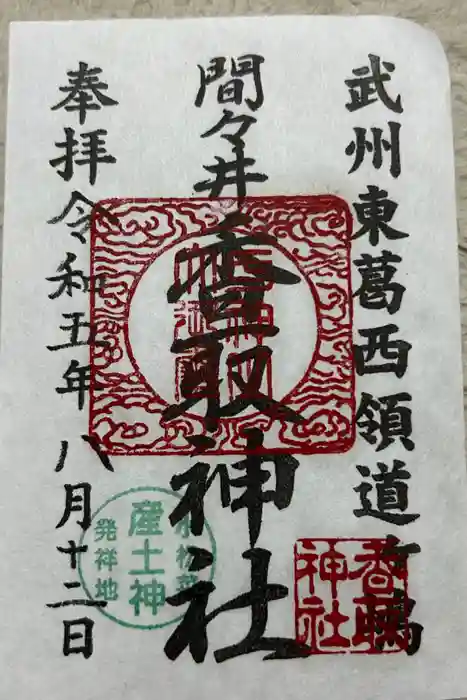 武州東葛西領道ヶ嶋
間々井
香取神社
奉拝令和五年八月十二日
香取
神社
小松菜
産土神
発祥地